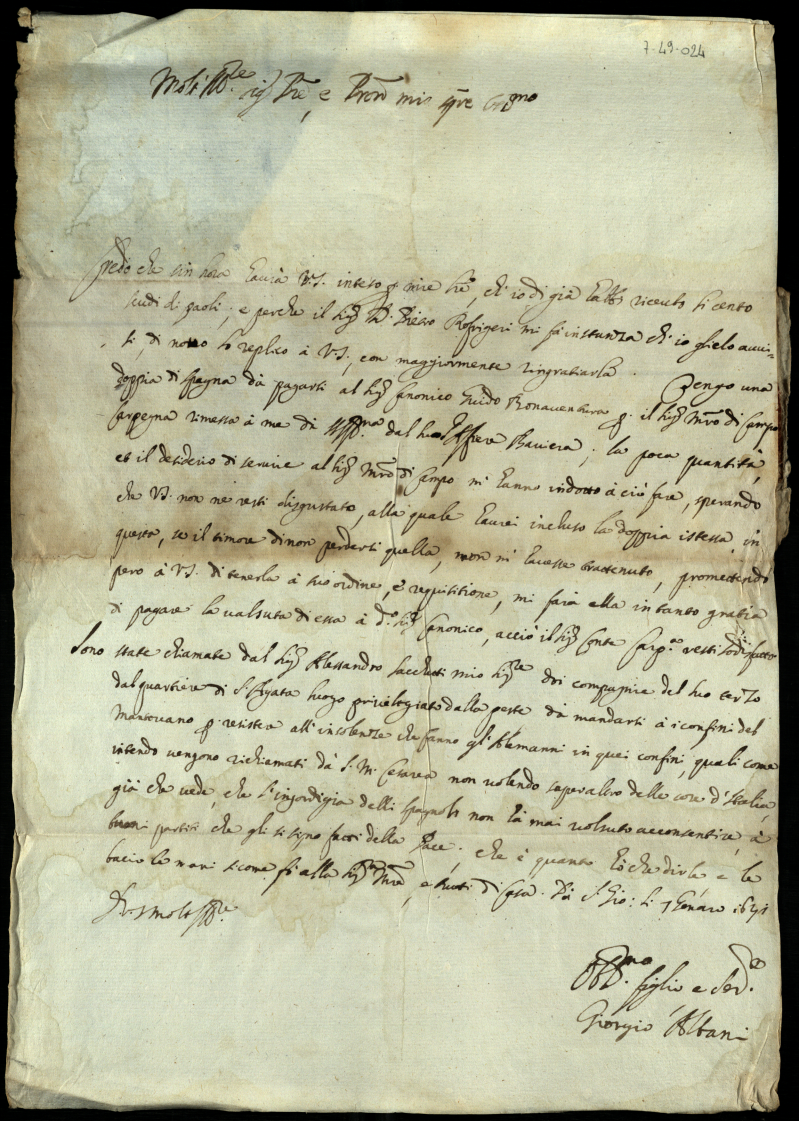 7-49-024
Molt Ill.re Sig.r P.re, e Pron mio sempre Oss.mo
Credo che sin hora haurà V.S. inteso p mie l're, ch'io di già habbi riceuuto li cento
scudi di paoli; e perche il Sig.r D. Pietro Refrigeri mi fà instanza ch'io glielo auui-
si, di nouo lo replico à V.S., con maggiormente ringratiarla. Tengo una
doppia di spagna dà pagarsi al Sig.r Canonico Guido Bonauentura p. il Sig.r Mro di Campo
Carpegna rimessa à me di dal Baviera; la poca quantità,
et il desiderio di seruire al Sig.r Mro di Campo m'hanno indotto à ciò fare, sperando
che V.S. non ne resti disgustato, alla quale haurei incluso la doppia istessa, in
questa, se il timore di non perdersi quella, non m'hauesse trattenuto, promettendo
però à V.S. di tenerla à suo ordine, e requisitione, mi farà ella in tanto gratia
di pagare la ualsuta di essa à d.o Sig.r Canonico, acciò il Sig.r Conte Carp.a resti sodisfatto
Sono state chiamate dal Sig.r Alessandro Sacchetti mio Sig.re doi compagnie del suo terzo
dal quartiere di S. Agata luogo priuilegiato dalla peste dà mandarsi à i confini del
Mantouano p. resister all'insolenze che fanno gl'Alemanni in quei confini, quali come
intendo uengono richiamati dà S. M. Cesarea non uolendo saper altro delle cose d'Italia,
già che uede, che l'ingordigia delli Spagnoli non hà mai uolsuto acconsentire, à
buoni partiti che gli si sono fatti della Pace; che è quanto hò che dirle e le
bacio le mani sicome fò alla Sig.ra M.re, e tutti di Casa. Dà S. Gio: li 7 Genaro 1631
D.V.S. molt Ill.re
Obb.mo figlio e Ser.re
Giorgio Albani